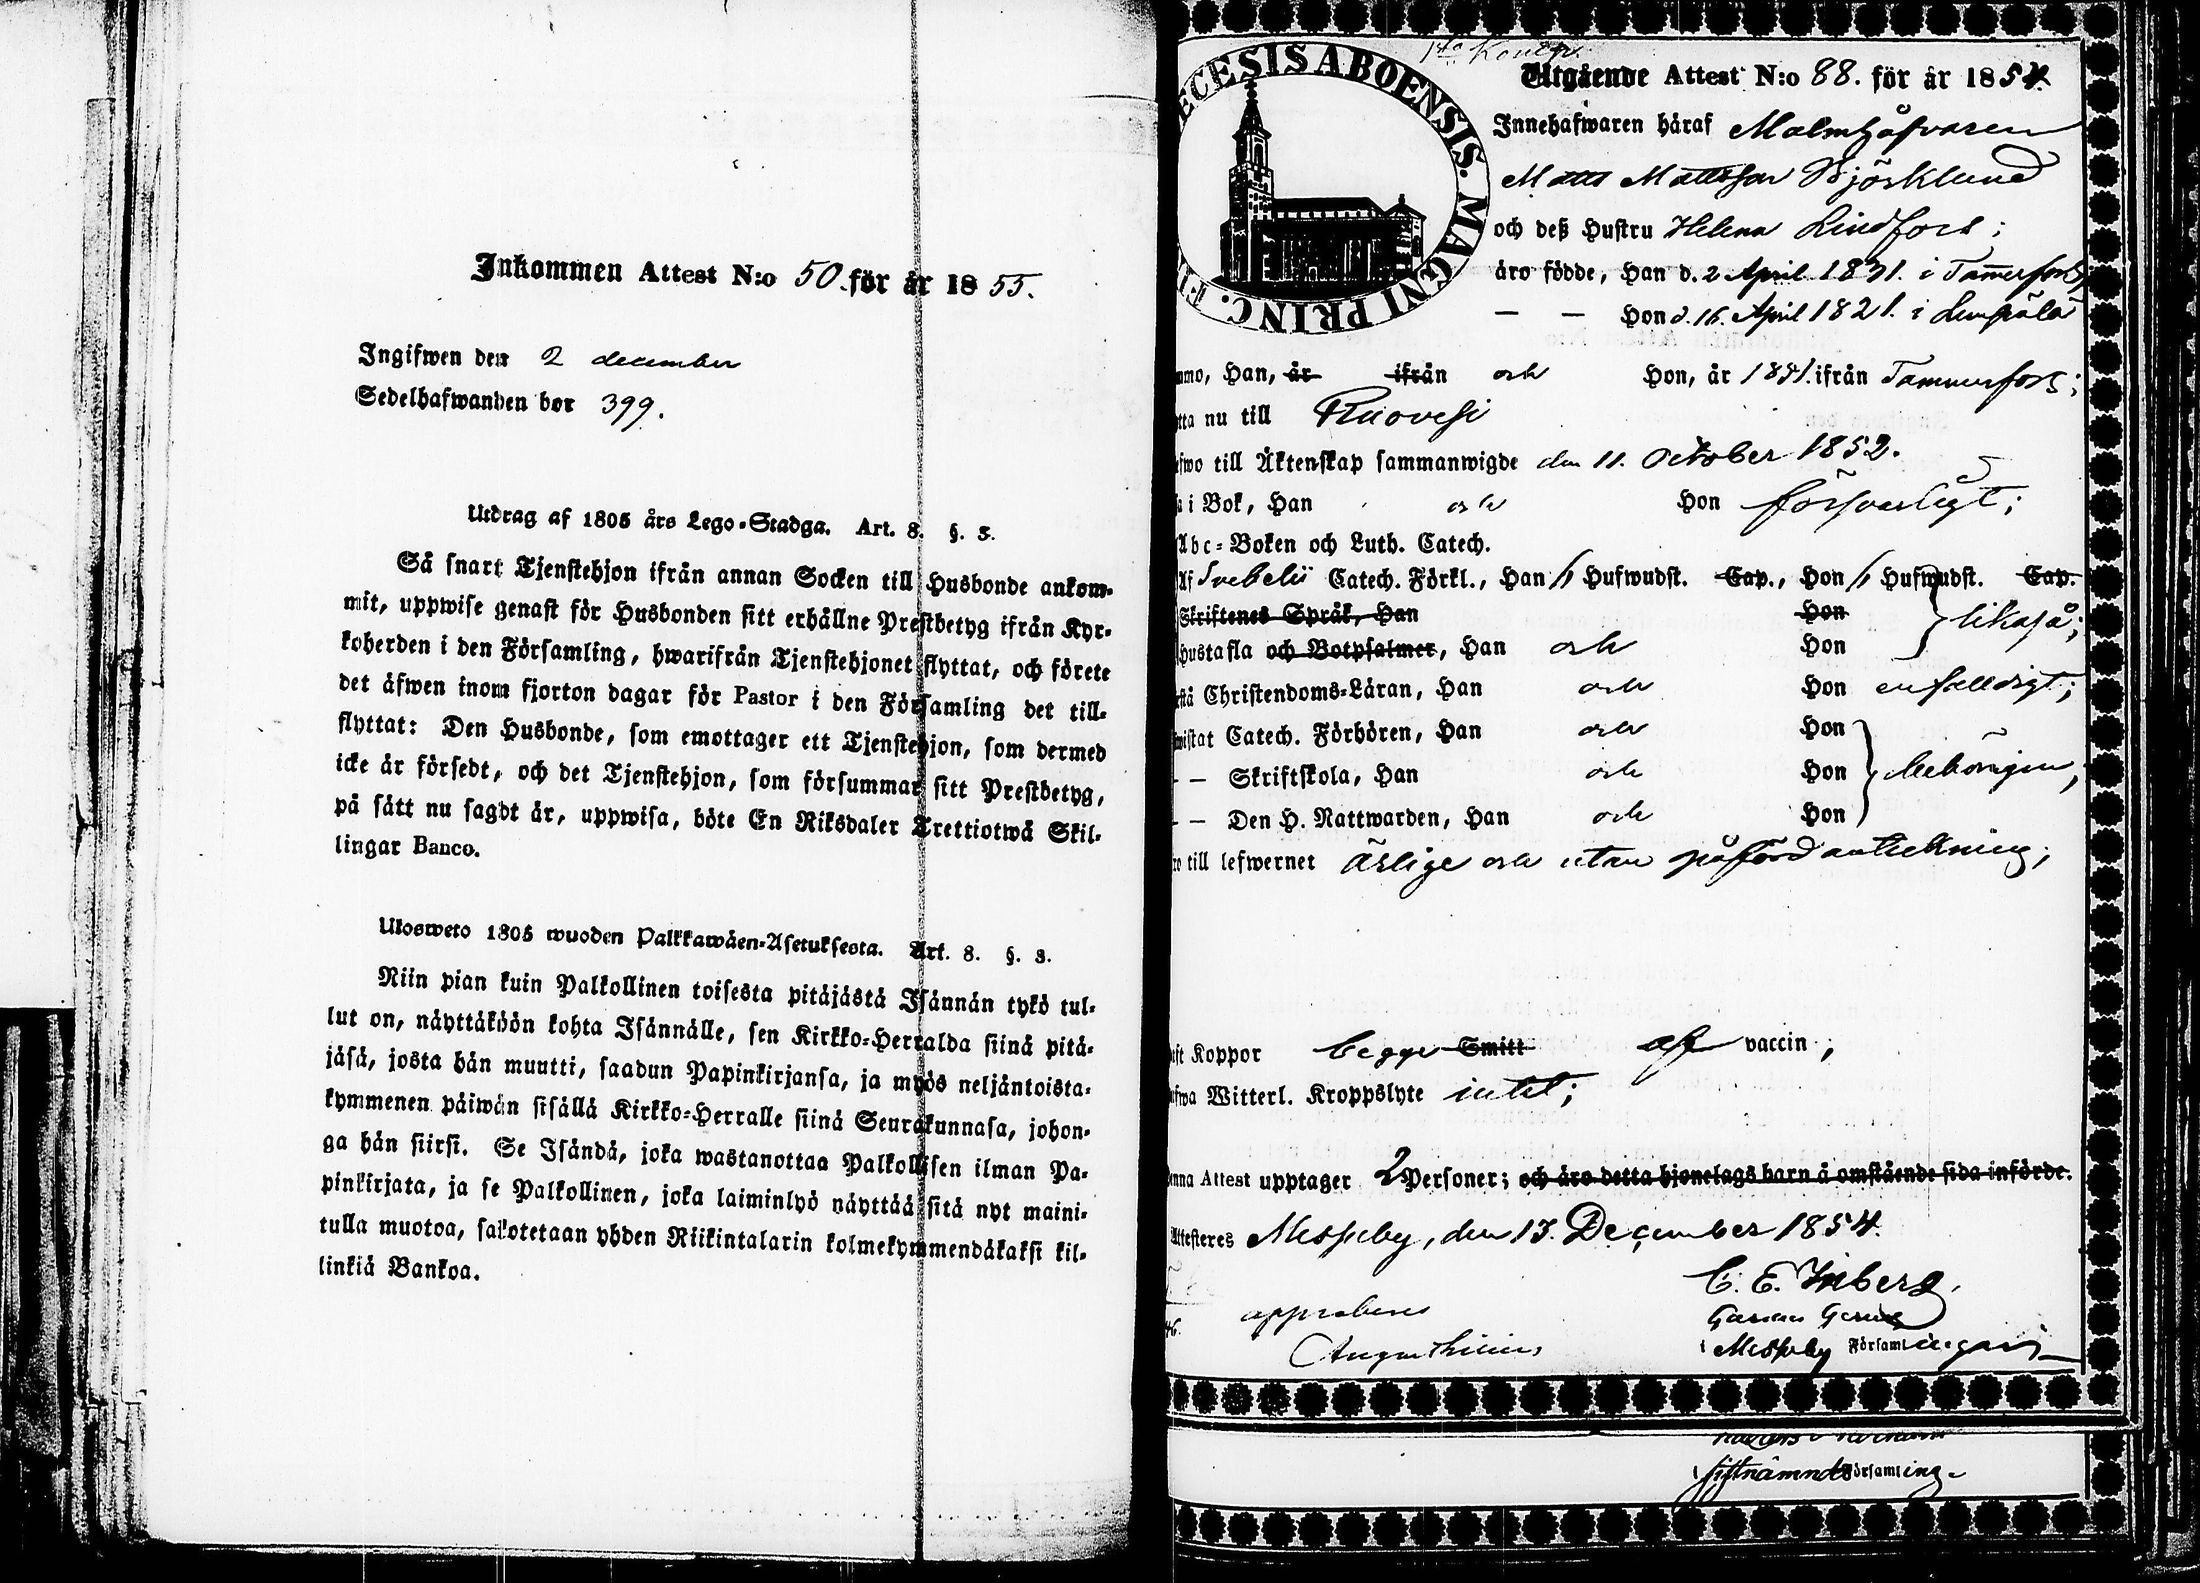 Inkommen Attest N:o 50. för år 1855.
Ingifwen den 2 december
Sedelhafwanden bor 399.
Utdrag af 1805 års Lego-Stadga. Art. 8. §. 3.
Så snart Tjenstehjon ifrån annan Socken till Husbonde ankom-
mit, uppwise genast för Husbonden sitt erhållne Prestbetyg ifrån Kyr-
koherden i den Församling, hwarifrån Tjenstehjonet flyttat, och förete
det äfwen inom fjorton dagar för Pastor i den Församling det till-
flyttat: Den Husbonde, som emottager ett Tjenstehjon, som dermed
icke är försedt, och det Tjenstehjon, som försummar sitt Prestbetyg,
på sätt nu sagdt är, uppwisa, böte En Riksdaler Trettiotwå Skil-
lingar Banco.
Ulosweto 1805 wuoden Palkkawäen-Asetuksesta. Art. 8. §. 3.
Niin pian kuin Palkollinen toisesta pitäjästä Isännän tykö tul-
lut on, näyttäköön kohta Isännälle, sen Kirkko-Herralda siinä pitä-
jäsä, josta hän muutti, saadun Papinkirjansa, ja myös neljäntoista-
kymmenen päiwän sisällä Kirkko-Herralle siinä Seurakunnasa, johon-
ga hän siirsi. Se Isändä, joka wastanottaa Palkollisen ilman Pa-
pinkirjata, ja se Palkollinen, joka laiminlyö näyttää sitä nyt maini-
tulla muotoa, sakotetaan yhden Riikintalarin kolmekymmendäkaksi kil-
linkiä Bankoa.
ECESIS ABOENSIS. MAGNI PRINC. F
Utgående Attest N:o 88. för år 1854.
Innehafwaren häraf Malmhåfvaren
Matts Mattsson Björklund
och deß Hustru Helena Lindfors;
äro födde, Han d. 2 April 1831. i Tammerfors,
— — Hon d. 16. April 1821. i Lempälä
mo, Han, år ifrån och Hon, år 1851. ifrån Tammerfors;
tta nu till Ruovesi
fwo till Äktenskap sammanwigde den 11. October 1852.
a i Bok, Han och Hon försvarligt;
Abc-Boken och Luth. Catech.
Af Svebelii Catech. Förkl., Han // Hufwudst. Cap., Hon // Hufwudst. Cap.
Skriftenes Språk, Han Hon likaså;
Hustafla och Botpsalmer, Han och Hon
stå Christendoms-Läran, Han och Hon enfaldigt;
wistat Catech. Förhören, Han och Hon
— — Skriftskola, Han och Hon behörigen,
— — Den H. Nattwarden, Han och Hon
ro till lefwernet ärlige och utan påförd anteckning;
aft Koppor begge Smitt af vaccin;
afwa Witterl. Kroppslyte intet;
enna Attest upptager 2 Personer; och äro detta hjonelags barn å omstående sida införde.
Attesteres Messuby, den 13. December 1854.
C. E.
approberes
i Messuby Församlingari
sistnämnde Församling.